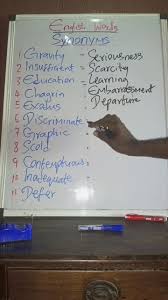 English Words
Synonyms
1 Gravity - Seriousness
2 Insufficient - Scarcity
3 Education - Learning
4 Chagrin - Embarrassment
5 Exodus - Departure
6 Discriminate -
7 Graphic -
8 Scold -
9 Contemptuous -
10 Inadequate -
11 Defer